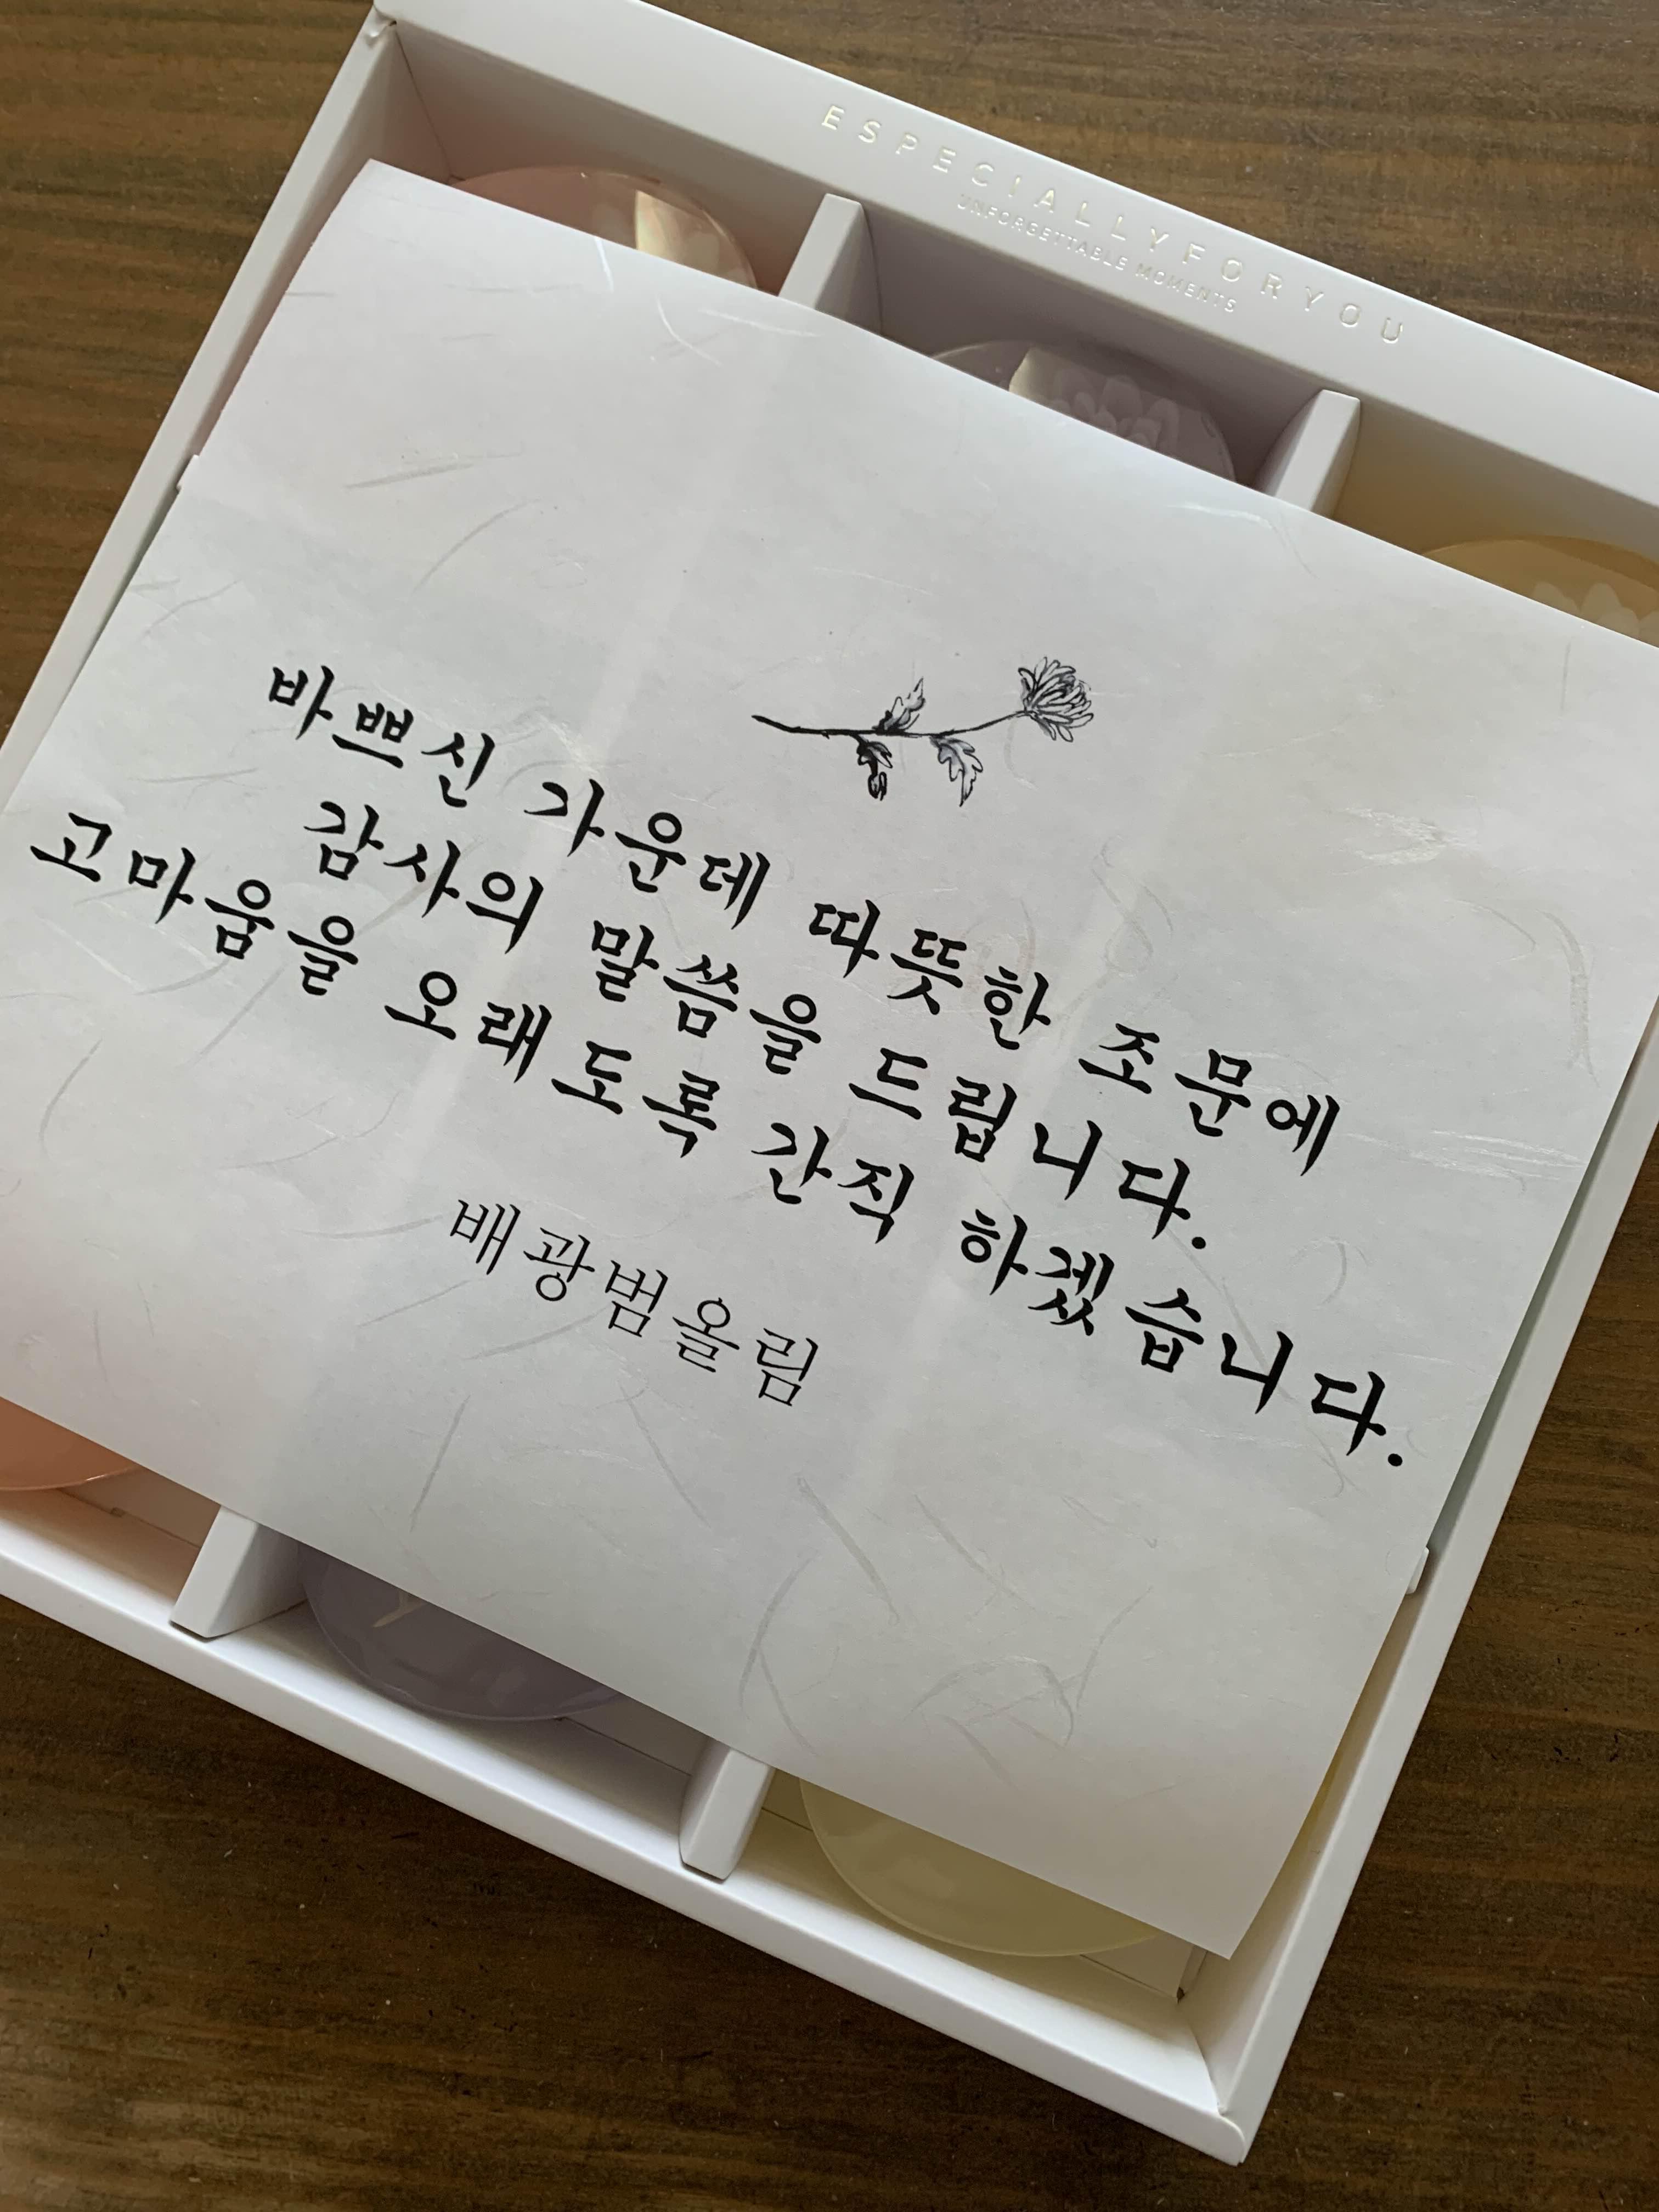 ESPECIALLY FOR YOU
UNFORGETTABLE MOMENTS
바쁘신 가운데 따뜻한 조문에
감사의 말씀을 드립니다.
고마움을 오래도록 간직 하겠습니다.
배광범올림